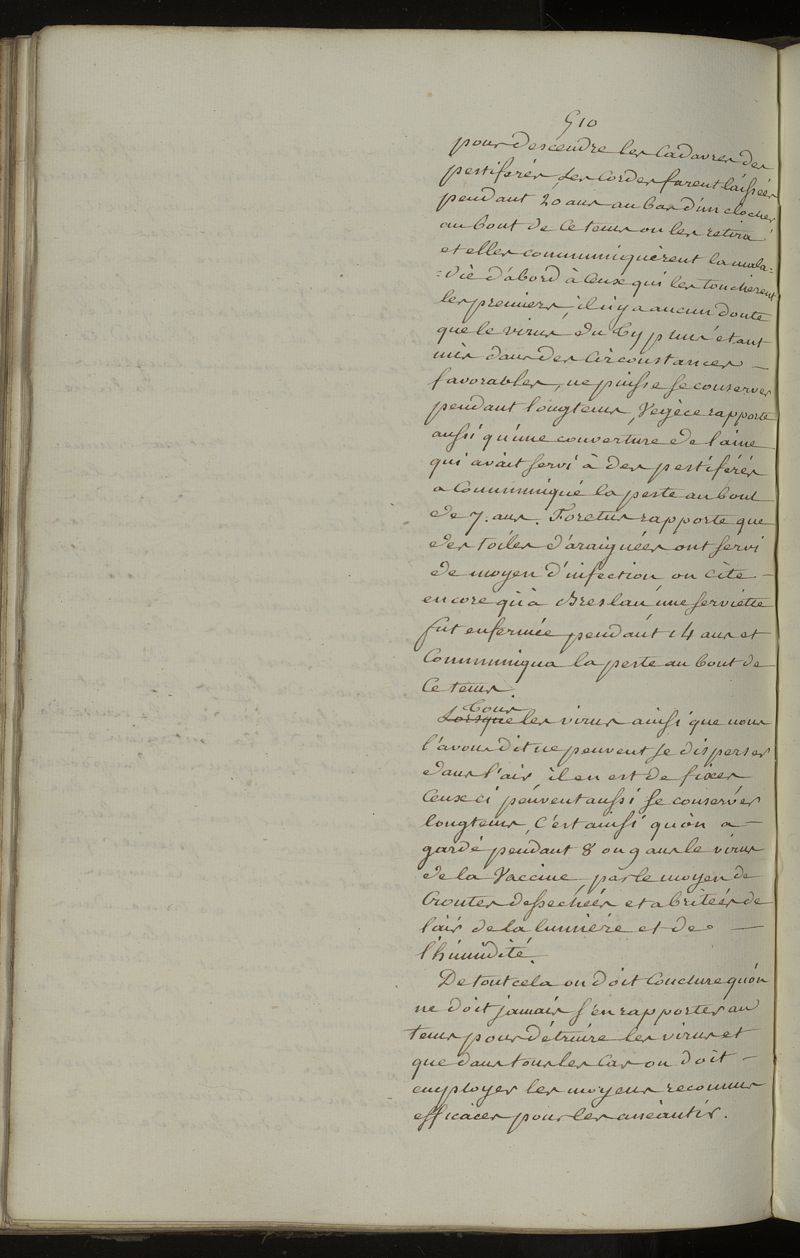 510
pour descendre les Cadavres des
pestiférés, les Cordes furent laissées
pendant 20 ans au bas d'un clocher
au bout de Ce tems on les retira
et elles communiquèrent la mala=
=die d'abord à Ceux qui les touchèrent
les premiers, il n'y a aucun doute
que le virus du Typhus étant
mis dans des Circonstances —
favorables, ne puisse se conserver
pendant longtems, Vegèce rapporte
aussi qu'une couverture de laine
qui avait servi à des pestiférés
a Communiqué la peste au bout
de 7. ans. Foretus rapporte que
des toiles d'araignées ont servi
de moyen d'infection on Cite —
encore qu'à Breslau une serviette
fut enfermée pendant 14 ans et
Communiqua la peste au bout de
Ce tems.
Tous
Lorsque les virus ainsi que nous
l'avons dit ne peuvent se disperser
dans l'air il en est de fixes
Ceux ci peuvent aussi se conserver
longtems, C'est ainsi qu'on a —
gardé pendant 8 ou 9 ans le virus
de la Vaccine par le moyen de
Croutes dessechées et abritées de
l'air de la lumière et de —
l'humidité.
De tout cela on doit Conclure qu'on
ne doit jamais s'en rapporter au
tems pour détruire les virus et
que dans tous les Cas on doit —
employer les moyens reconnus
efficaces pour les anéantir.